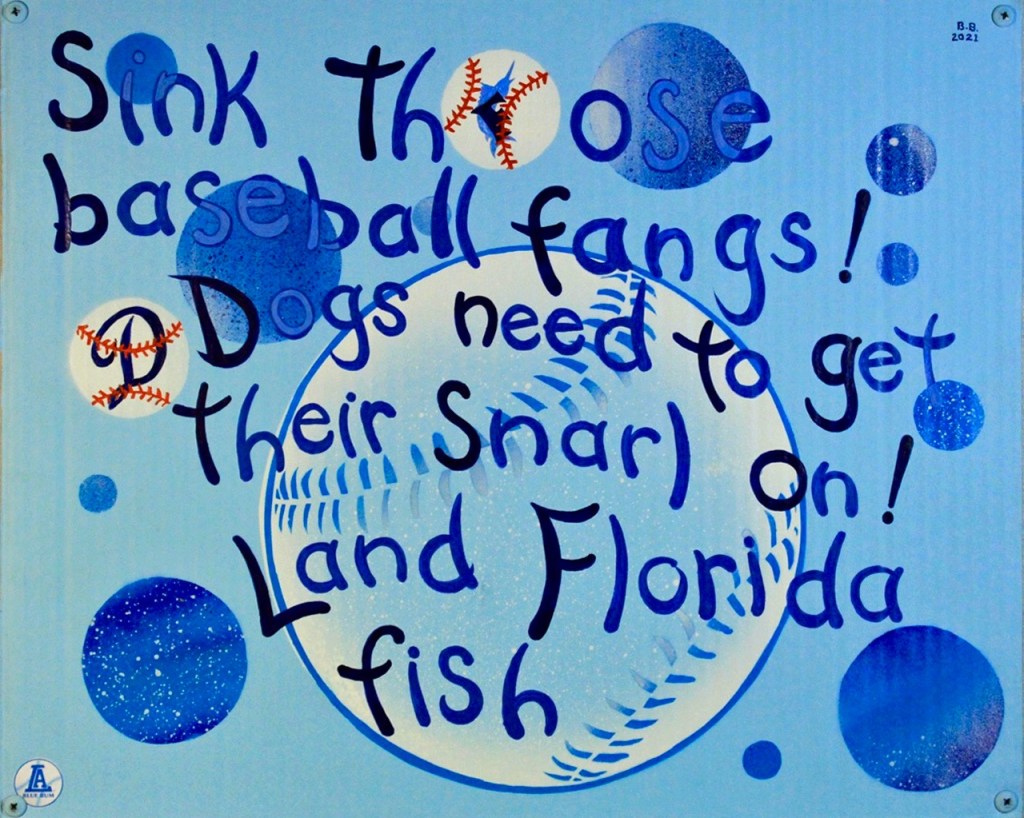 B.B.
2021
Sink Those
baseball fangs!
D Dogs need to get
their Snarl On!
Land Florida
fish
A